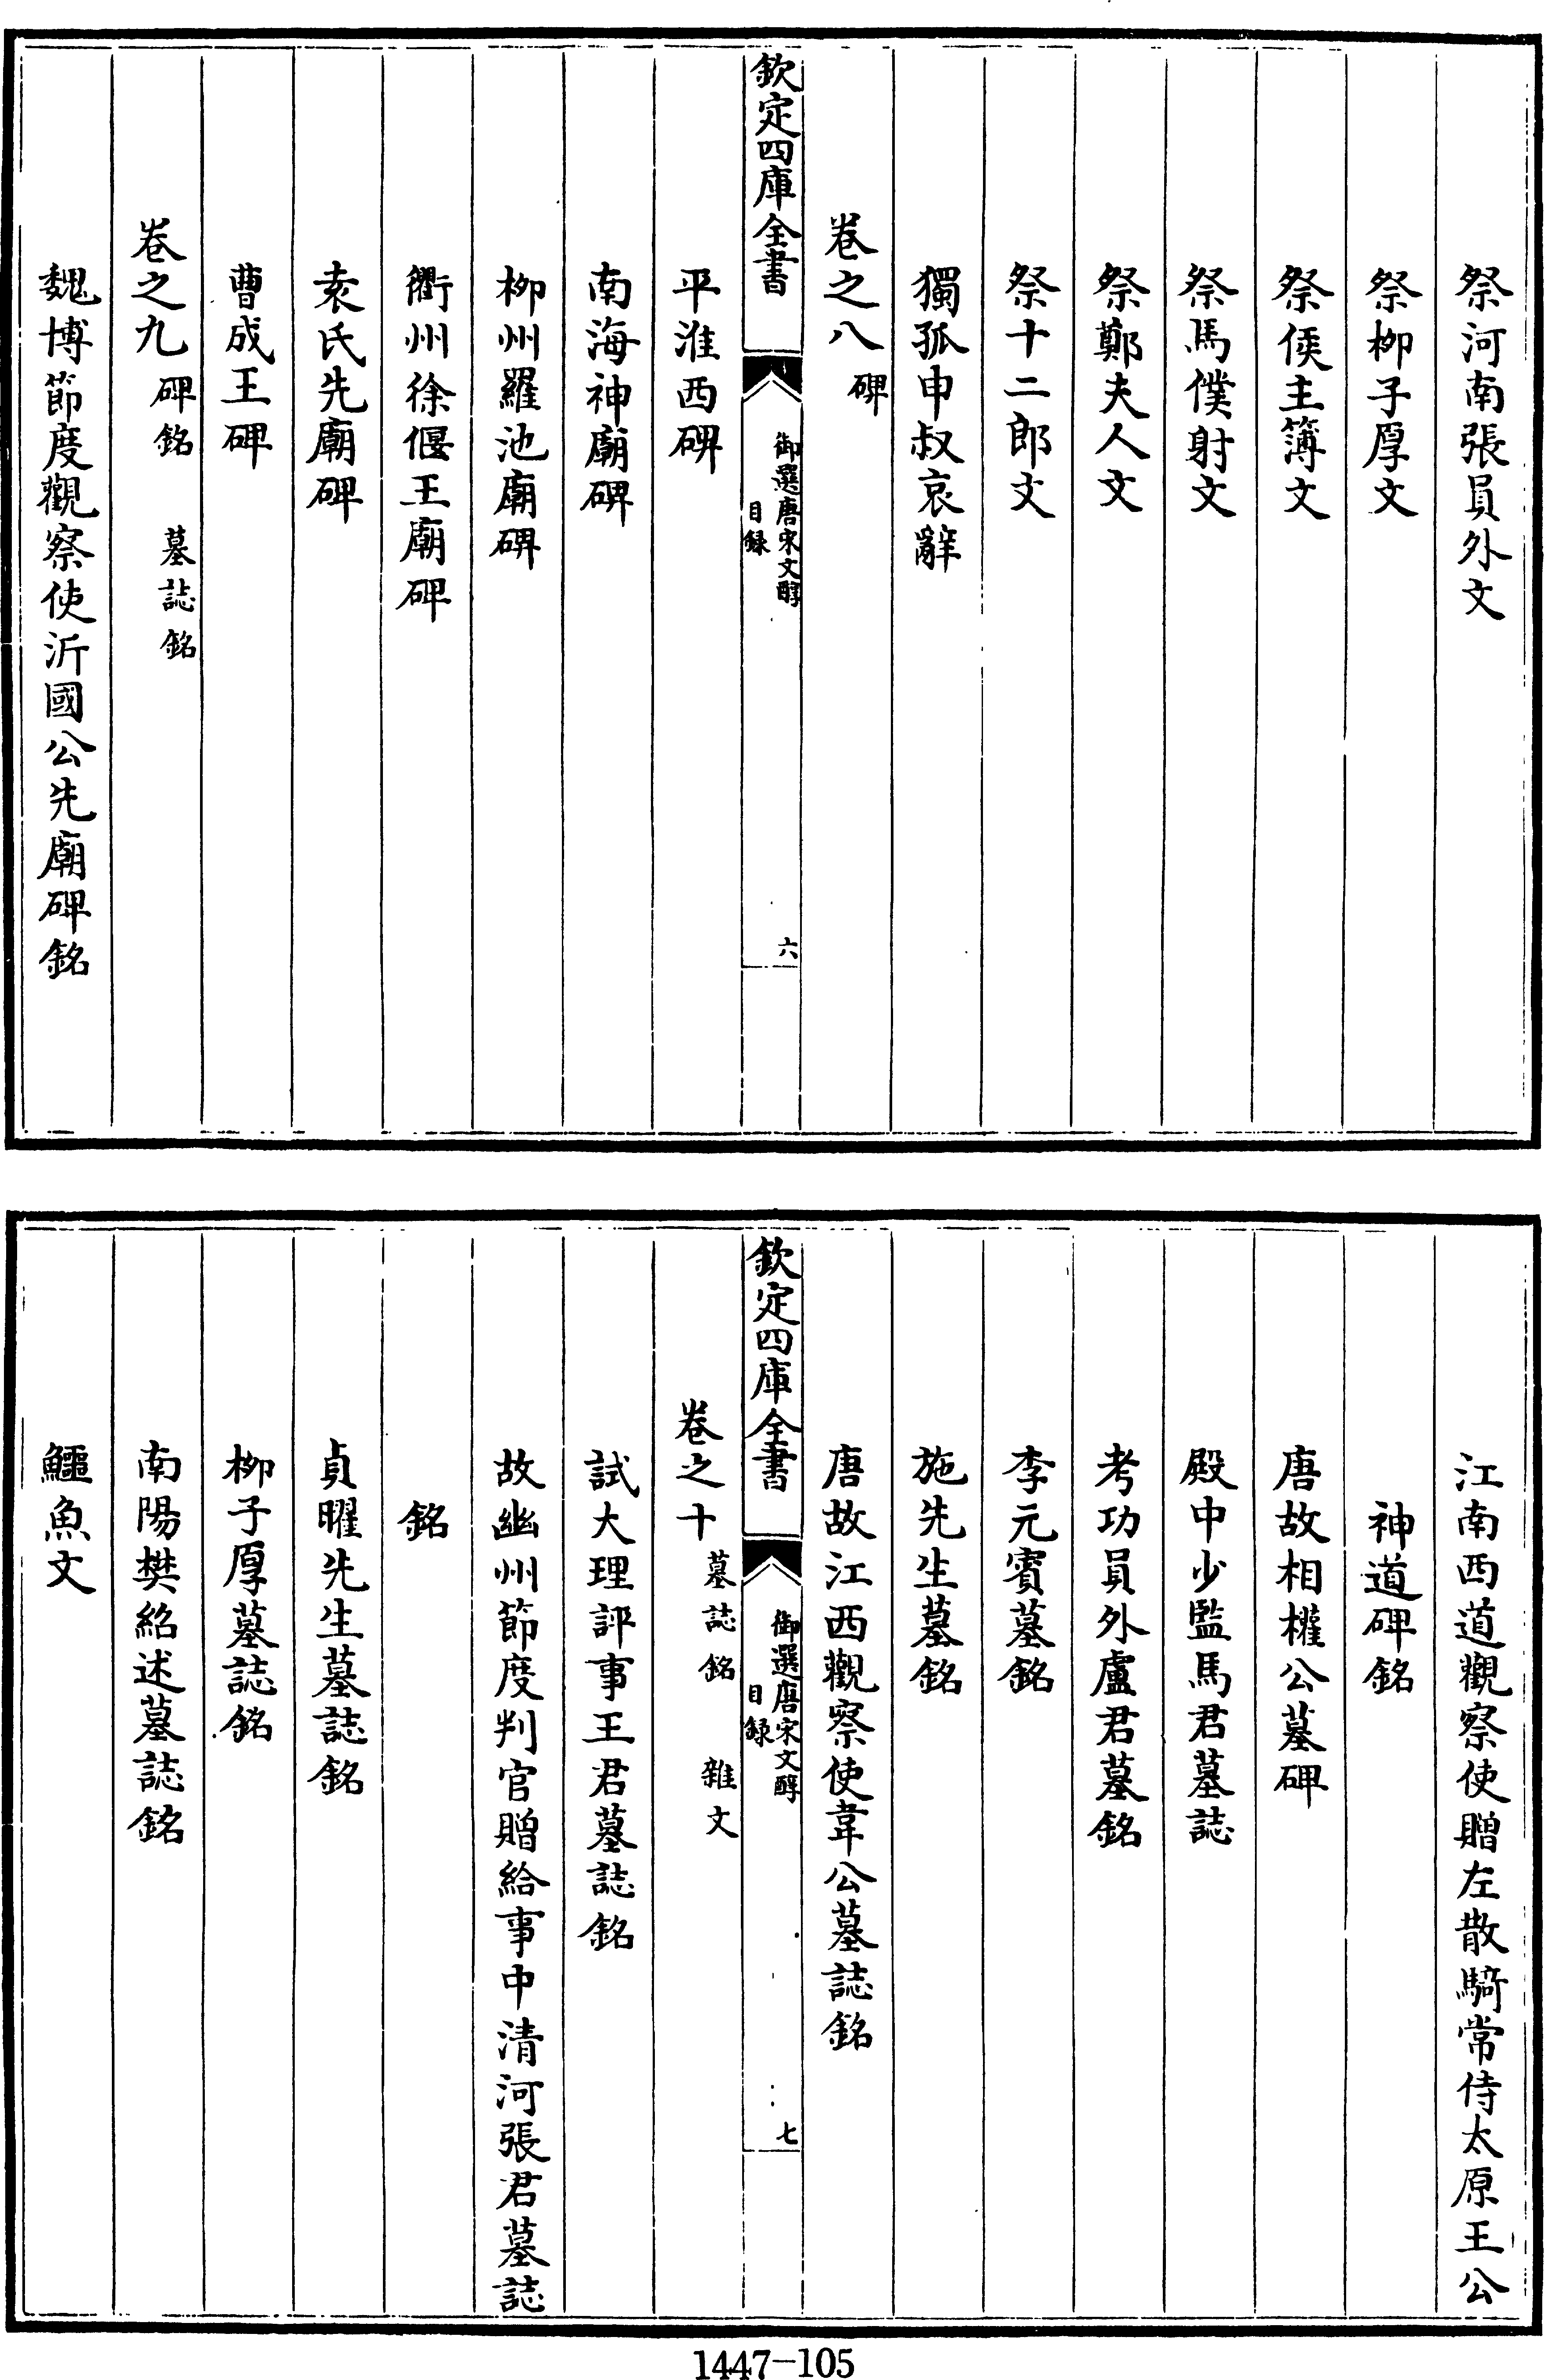 祭河南張員外文
祭柳子厚文
祭侯主簿文
祭馬僕射文
祭鄭夫人文
祭十二郎文
獨孤申叔哀辭
卷之八 碑
欽定四庫全書
御選唐宋文醇
目録
六
平淮西碑
南海神廟碑
柳州羅池廟碑
衢州徐偃王廟碑
袁氏先廟碑
曹成王碑
卷之九 碑銘 墓誌銘
魏博節度觀察使沂國公先廟碑銘
江南西道觀察使贈左散騎常侍太原王公
神道碑銘
唐故相權公墓碑
殿中少監馬君墓誌
考功員外盧君墓銘
李元賓墓銘
施先生墓銘
唐故江西觀察使韋公墓誌銘
欽定四庫全書
御選唐宋文醇
目録
七
卷之十 墓誌銘 雜文
試大理評事王君墓誌銘
故幽州節度判官贈給事中清河張君墓誌
銘
貞曜先生墓誌銘
柳子厚墓誌銘
南陽樊紹述墓誌銘
鱷魚文
1447-105